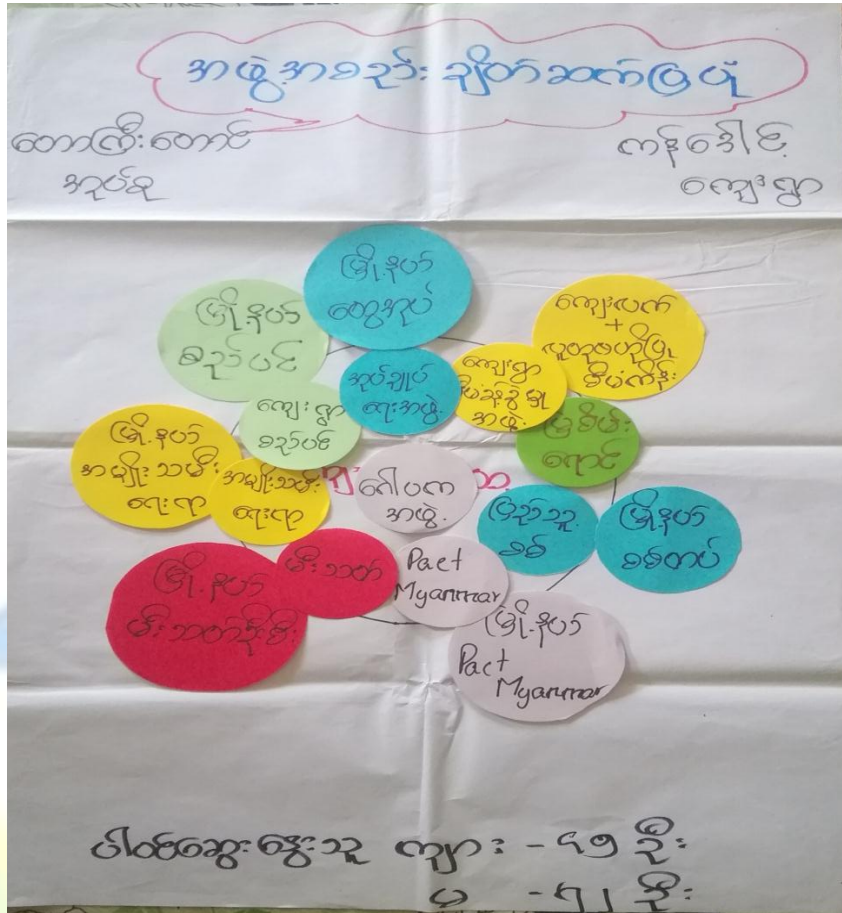 အဖွဲ့အစည်း ချိတ်ဆက်ပြပုံ
တောကြီးတောင်
အုပ်စု
ကန်ဒေါင့်
ကျေးရွာ
မြို့နယ်
ထွေအုပ်
မြို့နယ်
စည်ပင်
ကျေးလက်
+
လူထုဗဟိုပြု
စီမံကိန်း
အုပ်ချုပ်
ရေးအဖွဲ့
ကျေးရွာ
စီမံခန့်ခွဲမှု
အဖွဲ့
ကျေးရွာ
စည်ပင်
မြစိမ်း
ရောင်
မြို့နယ်
အမျိုးသမီး
ရေးရာ
အမျိုးသမီး
ရေးရာ
ဂေါပက
အဖွဲ့
ပြည်သူ့
စစ်
မြို့နယ်
စစ်တပ်
မြို့နယ်
မီးသတ်ဦးစီး
မီးသတ်
Pact
Myanmar
မြို့နယ်
Pact
Myanmar
ပါဝင်ဆွေးနွေးသူ ကျား - ၄၅ ဦး
မ - ၅၂ ဦး